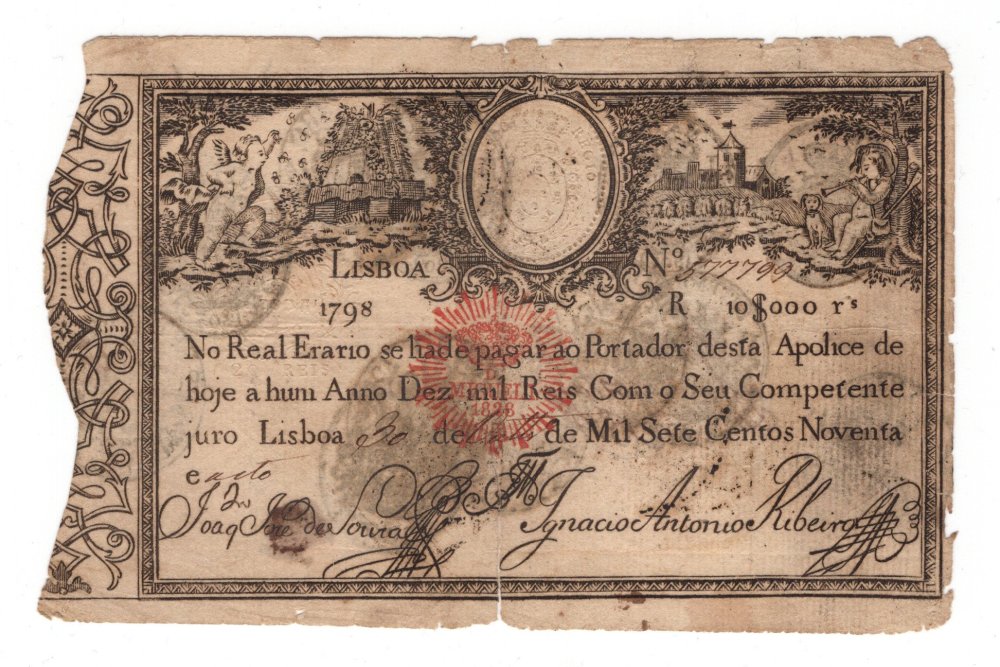 LISBOA Nº 577799
1798 R 10$000 rs
No Real Erario se ha de pagar ao Portador desta Apolice de
hoje a hum Anno Dez mil Reis Com o Seu Competente
D.
MIGUEL I
1828
juro Lisboa 30 de de Mil Sete Centos Noventa
e outo
Joaq Jose de Souza Ignacio Antonio Ribeiro